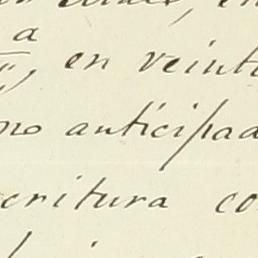 a
, en veint
no anticipad
critura co